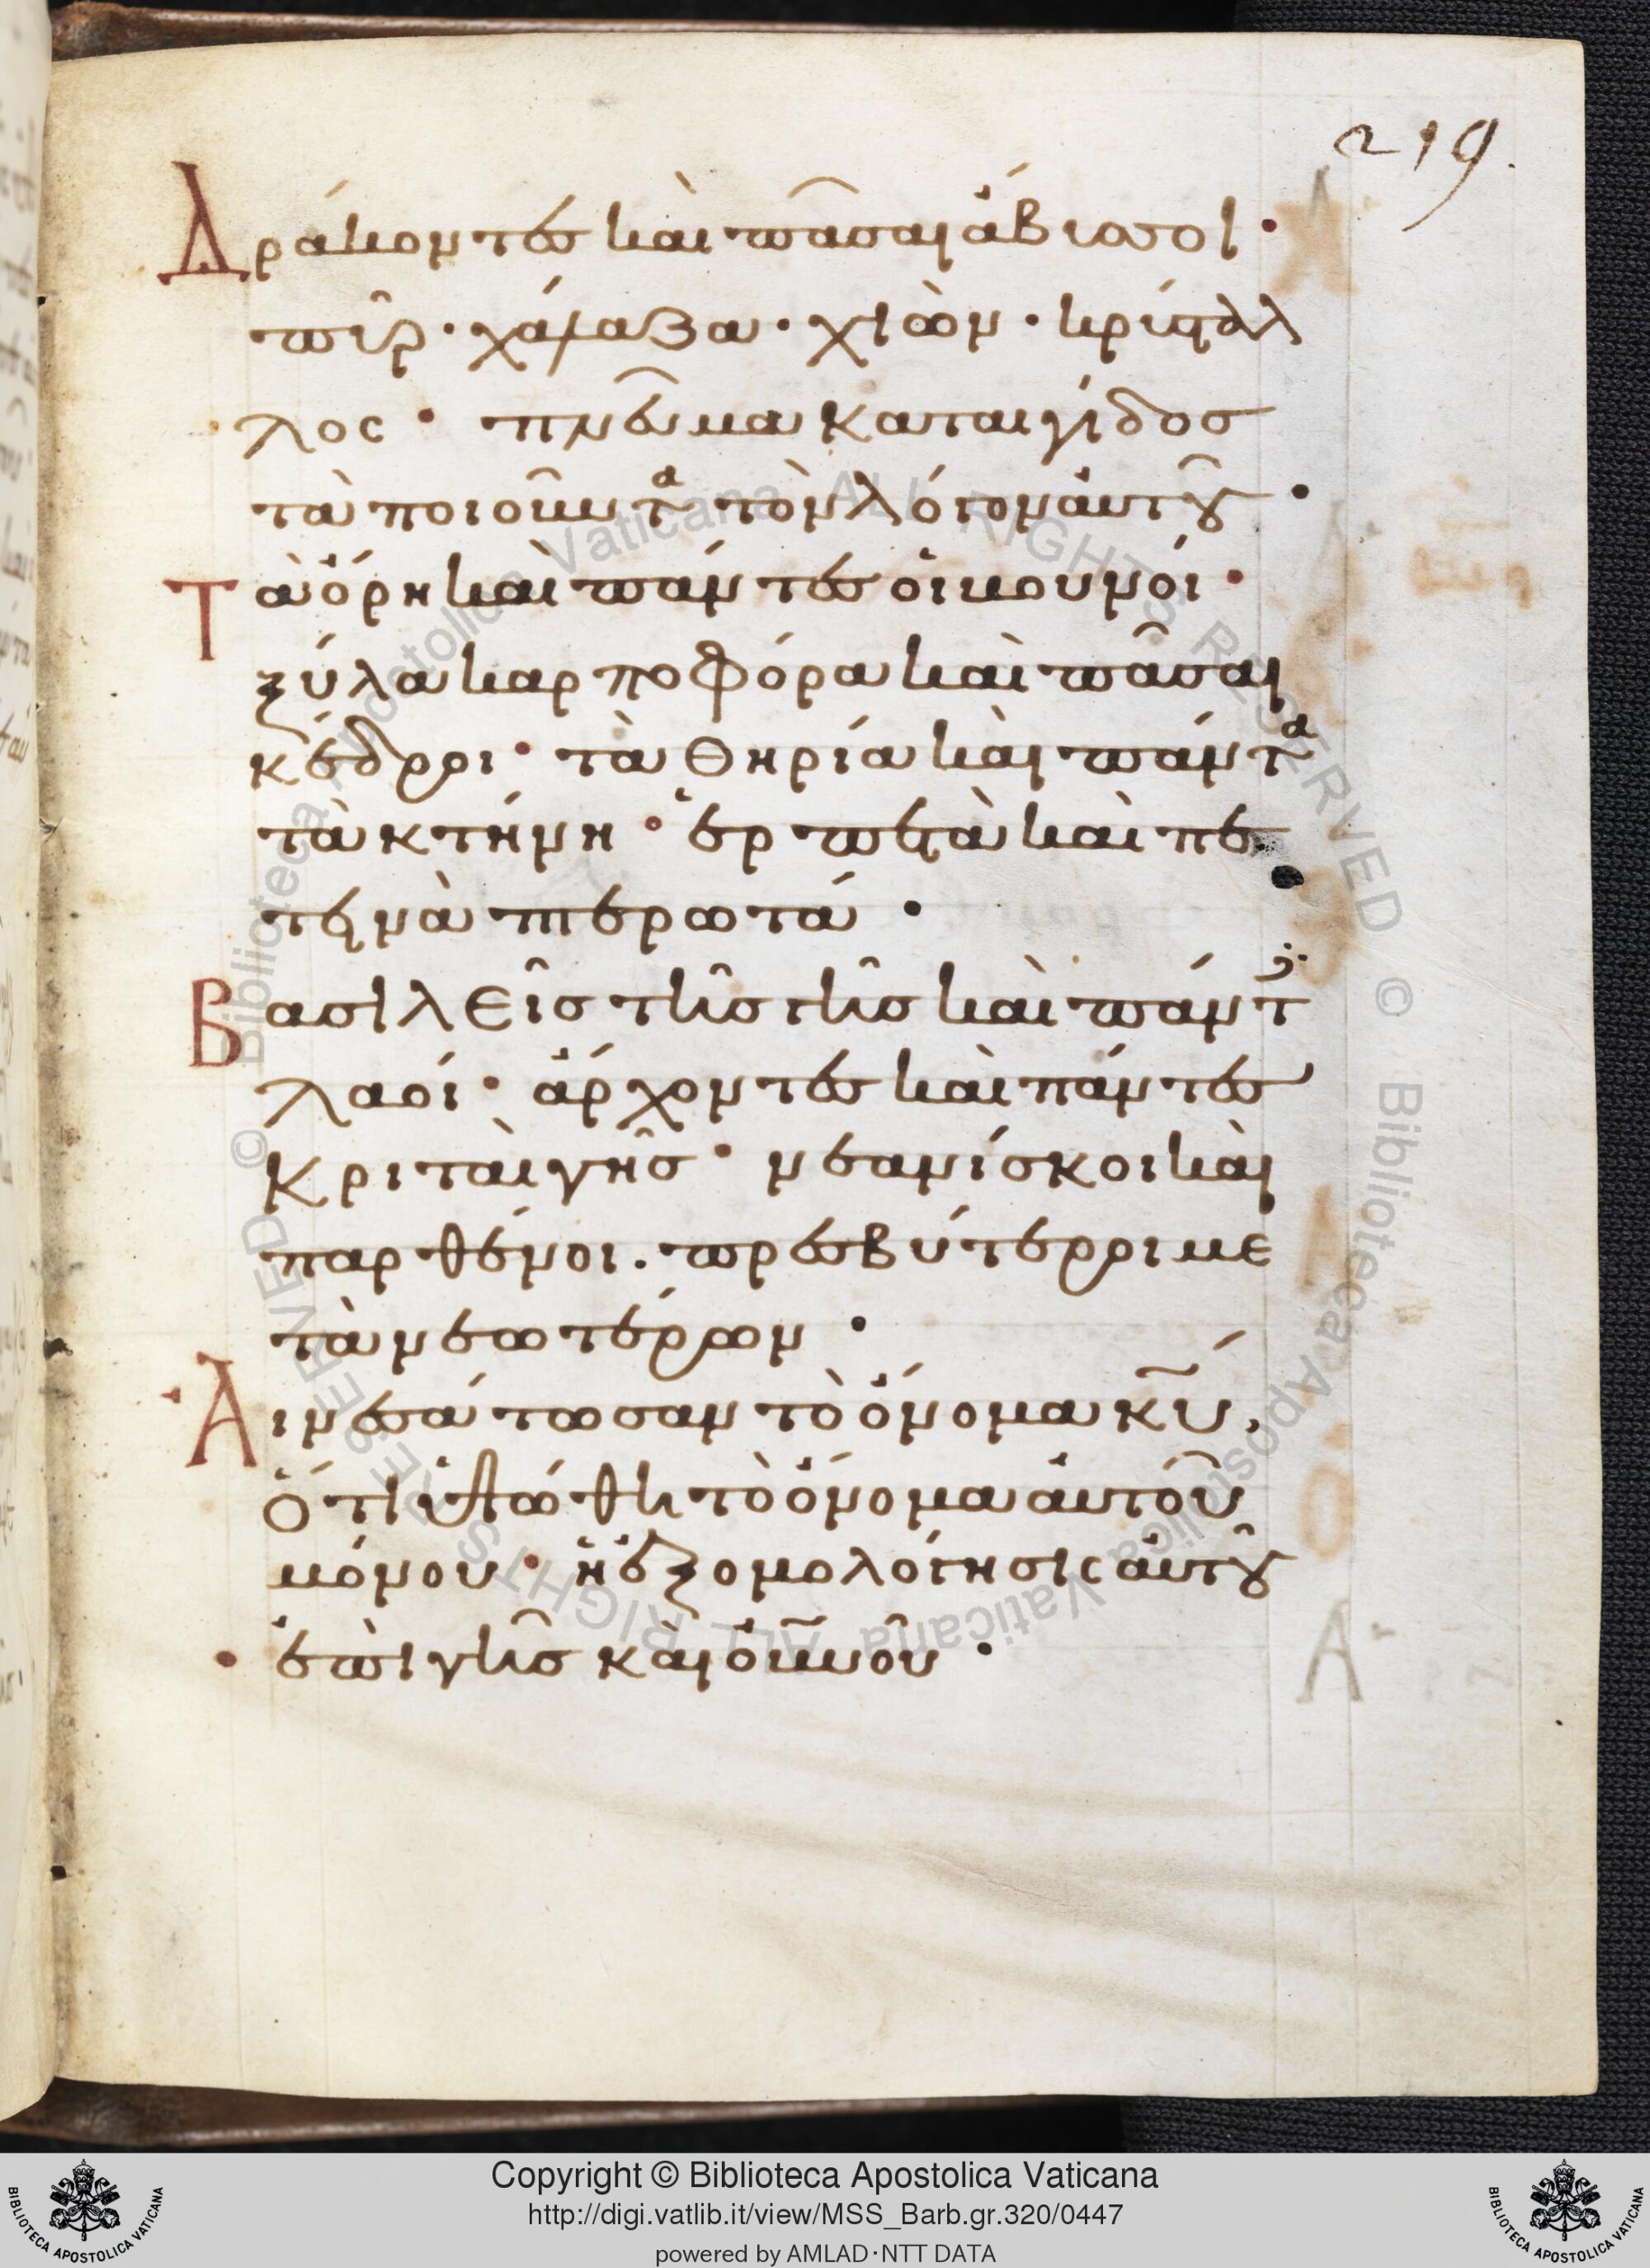 219.
Δράκοντες καὶ πᾶσαι ἄβυσσοι·
πῦρ· χάλαζα· χιὼν· κρύσταλ
λος· πνεῦμα καταιγίδος
τὰ ποιοῦντα τὸν λόγον αὐτοῦ·
Τὰ ὄρη καὶ πάντες οἱ βουνοί·
ξύλα καρποφόρα καὶ πᾶσαι
κέδροι· τὰ θηρία καὶ πάντα
τὰ κτήνη· ἑρπετὰ καὶ πε
τεινὰ πτερωτά·
Βασιλεῖς τῆς γῆς καὶ πάντες
λαοί· ἄρχοντες καὶ πάντες
κριταὶ γῆς· νεανίσκοι καὶ
παρθένοι. πρεσβύτεροι με
τὰ νεωτέρων·
Αἰνεσάτωσαν τὸ ὄνομα κυ,
ὅτι ὑψώθη τὸ ὄνομα αὐτοῦ
μόνου· ἡ ἐξομολόγησις αὐτοῦ
ἐπὶ γῆς καὶ οὐνοῦ·
Copyright © Biblioteca Apostolica Vaticana
http://digi.vatlib.it/view/MSS_Barb.gr.320/0447
powered by AMLAD·NTT DATA
BIBLIOTECA APOSTOLICA VATICANA
BIBLIOTECA APOSTOLICA VATICANA
© Biblioteca Apostolica Vaticana ALL RIGHTS RESERVED © Biblioteca Apostolica Vaticana ALL RIGHTS RESERVED